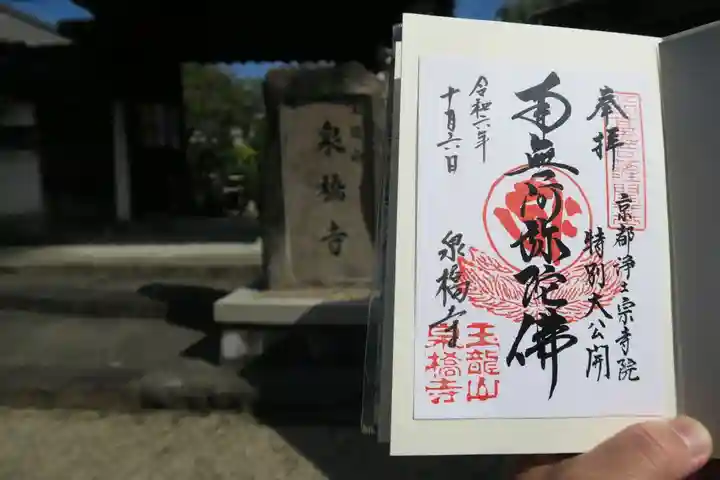 奉拝
京都浄土宗寺院
特別大公開
南無阿弥陀佛
令和六年
十月六日
泉橋寺
玉龍山
泉橋寺
泉橋寺